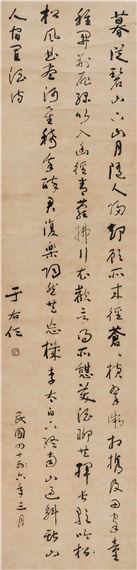 暮從碧山下山月隨人歸卻顧所來徑蒼〻橫翠微相攜及田家童
稚開荊扉綠竹入幽徑青蘿拂行衣歡言得所憩美酒聊共揮長歌吟
松風曲盡河星稀我醉君復樂陶然共忘機李太白下終南山過斛斯山
人宿置酒詩
于右任
民國四十六年三月